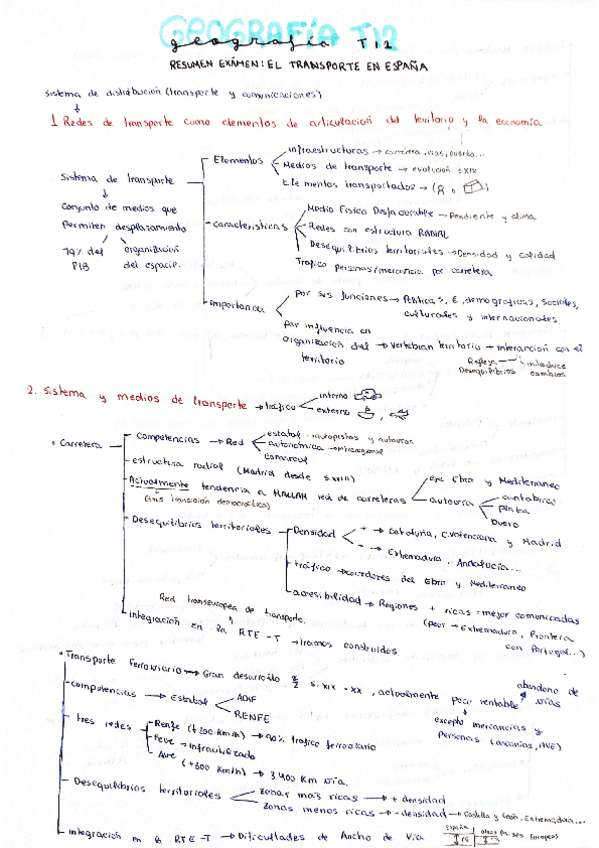 GEOGRAFÍA T12
geografía T12
RESUMEN EXÁMEN: EL TRANSPORTE EN ESPAÑA
Sistema de distribución (transporte y comunicaciones)
1 Redes de transporte como elementos de articulacion del territorio y la economía
Sistema de transporte
Conjunto de medios que
Permiten desplazamiento
organización
del espacio.
PIB
Elementos
infraestructuras → carretera, vias, puerto...
Medios de transporte → evolución s.XIX
Elementos transportados → ( , )
características
Medio Físico Desfavorable → Pendiente y clima
Redes con estructura RADIAL
Desequilibrios territoriales → Densidad y calidad
Trafico personas/mercancia por carretera
importancia
por sus funciones → Políticas, E, demograficas, sociales,
culturales y internacionales.
por influencia en
organizacion del → vertebran territorio + interaccion con el
territorio
Refleja
Desequilibrios
introduce
cambios
2. Sistema y medios de transporte → tráfico
interno
externo
• Carretera
Competencias → Red
estatal autopistas y autovias
autonómica
comarcal
estructura radial (Madrid desde s.XVIII)
Actualmente tendencia a MALLAR red de carreteras
(tras transición democrática)
eje Ebro y Mediterraneo
autovia
cantabrico
plata
Duero
Desequilibrios territoriales
Densidad
+ → Cataluña, C.Valenciana y Madrid
- → Extremadura, Andalucía...
tráfico → corredores del Ebro y Mediterraneo
accesibilidad → Regiones + ricas = mejor comunicadas
(peor → Extremadura, Frontera
con Portugal...)
Red transeuropea de transporte.
integración en la RTE-T → tramos construidos
• Transporte Ferroviario → Gran desarrollo 2/2 s.XIX-XX, actualmente poco rentable
abandono de
vias
excepto mercancias y
Personas (cercanías, AVE)
competencias → Estatal
ADIF
RENFE
tres redes
Renfe (+200 km/h) → 90% trafico ferroviario
Feve → infrautilizado
Ave (+300 km/h) → 3400 km via.
Desequilibrios territoriales
zonas mas ricas → + densidad
zonas menos ricas → - densidad → Castilla y León, Extremadura...
integración en la RTE-T → Dificultades de Ancho de Via
España
otros (países Europeos)